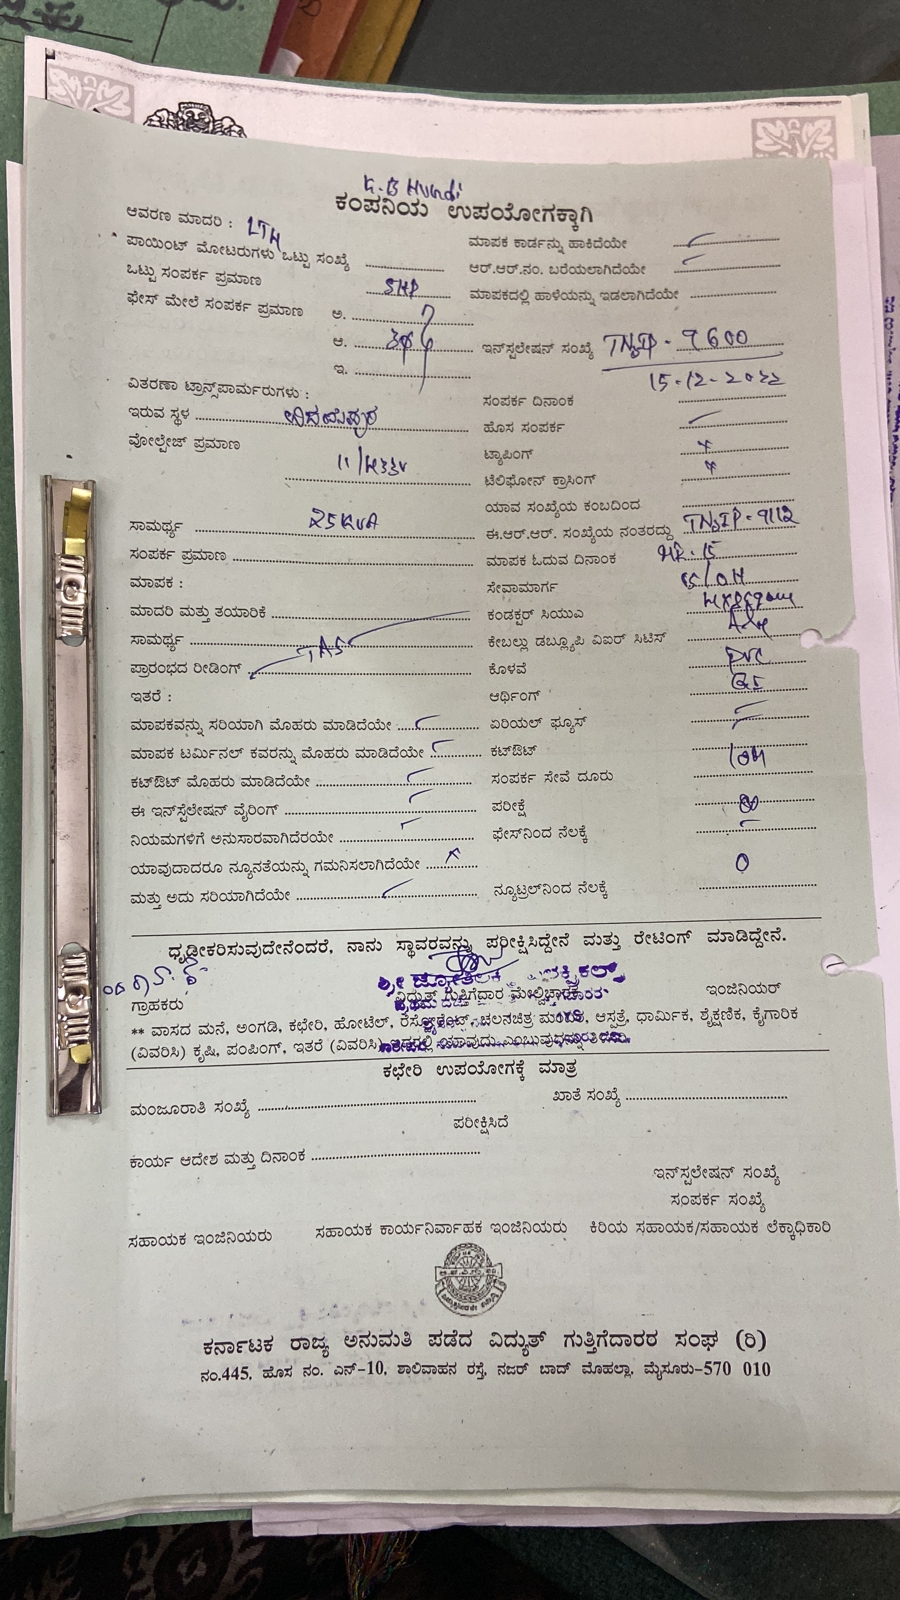 K.B Hundi
ಕಂಪನಿಯ ಉಪಯೋಗಕ್ಕಾಗಿ
ಆವರಣ ಮಾದರಿ :
ಮಾಪಕ ಕಾರ್ಡನ್ನು ಹಾಕಿದೆಯೇ
ಪಾಯಿಂಟ್ ಮೋಟರುಗಳು ಒಟ್ಟು ಸಂಖ್ಯೆ
ಆರ್.ಆರ್.ನಂ. ಬರೆಯಲಾಗಿದೆಯೇ
ಒಟ್ಟು ಸಂಪರ್ಕ ಪ್ರಮಾಣ 5HP
ಮಾಪಕದಲ್ಲಿ ಹಾಳೆಯನ್ನು ಇಡಲಾಗಿದೆಯೇ
ಫೇಸ್ ಮೇಲೆ ಸಂಪರ್ಕ ಪ್ರಮಾಣ ಅ.
ಆ. 3φ
ಇನ್‌ಸ್ಟಲೇಷನ್ ಸಂಖ್ಯೆ TN3IP - 9600
ಇ.
15-12-2022
ವಿತರಣಾ ಟ್ರಾನ್ಸ್‌ಫಾರ್ಮರುಗಳು :
ಸಂಪರ್ಕ ದಿನಾಂಕ
ಇರುವ ಸ್ಥಳ
ಹೊಸ ಸಂಪರ್ಕ
ವೋಲ್ಟೇಜ್ ಪ್ರಮಾಣ
ಟ್ಯಾಪಿಂಗ್ x
ಟೆಲಿಫೋನ್ ಕ್ರಾಸಿಂಗ್ x
ಯಾವ ಸಂಖ್ಯೆಯ ಕಂಬದಿಂದ
ಸಾಮರ್ಥ್ಯ 25 KVA
ಈ.ಆರ್.ಆರ್. ಸಂಖ್ಯೆಯ ನಂತರದ್ದು TN3IP-9112
ಸಂಪರ್ಕ ಪ್ರಮಾಣ
ಮಾಪಕ ಓದುವ ದಿನಾಂಕ MR-15
ಮಾಪಕ :
ಸೇವಾಮಾರ್ಗ
ಮಾದರಿ ಮತ್ತು ತಯಾರಿಕೆ
ಕಂಡಕ್ಟರ್ ಸಿಯುಎ
ಸಾಮರ್ಥ್ಯ
ಕೇಬಲ್ಲು ಡಬ್ಲ್ಯೂಪಿ ವಿಐರ್ ಸಿಟಿಸ್
ಪ್ರಾರಂಭದ ರೀಡಿಂಗ್
ಕೊಳವೆ PVC
ಇತರೆ :
ಆರ್ಥಿಂಗ್ GI
ಮಾಪಕವನ್ನು ಸರಿಯಾಗಿ ಮೊಹರು ಮಾಡಿದೆಯೇ
ಏರಿಯಲ್ ಫ್ಯೂಸ್
ಮಾಪಕ ಟರ್ಮಿನಲ್ ಕವರನ್ನು ಮೊಹರು ಮಾಡಿದೆಯೇ
ಕಟ್‌ಔಟ್
ಕಟ್‌ಔಟ್ ಮೊಹರು ಮಾಡಿದೆಯೇ
ಸಂಪರ್ಕ ಸೇವೆ ದೂರು
ಈ ಇನ್‌ಸ್ಟೆಲೇಷನ್ ವೈರಿಂಗ್
ಪರೀಕ್ಷೆ
ನಿಯಮಗಳಿಗೆ ಅನುಸಾರವಾಗಿದೆರಯೇ
ಫೇಸ್‌ನಿಂದ ನೆಲಕ್ಕೆ
ಯಾವುದಾದರೂ ನ್ಯೂನತೆಯನ್ನು ಗಮನಿಸಲಾಗಿದೆಯೇ
ಮತ್ತು ಅದು ಸರಿಯಾಗಿದೆಯೇ
ನ್ಯೂಟ್ರಲ್‌ನಿಂದ ನೆಲಕ್ಕೆ 0
ಧೃಢೀಕರಿಸುವುದೇನೆಂದರೆ, ನಾನು ಸ್ಥಾವರವನ್ನು ಪರೀಕ್ಷಿಸಿದ್ದೇನೆ ಮತ್ತು ರೇಟಿಂಗ್ ಮಾಡಿದ್ದೇನೆ.
ಗ್ರಾಹಕರು
ವಿದ್ಯುತ್ ಗುತ್ತಿಗೆದಾರ ಮೇಲ್ವಿಚಾರಕ
ಇಂಜಿನಿಯರ್
** ವಾಸದ ಮನೆ, ಅಂಗಡಿ, ಕಛೇರಿ, ಹೋಟೆಲ್, ರೆಸ್ಟೋರೆಂಟ್, ಚಲನಚಿತ್ರ ಮಂದಿರ, ಆಸ್ಪತ್ರೆ, ಧಾರ್ಮಿಕ, ಶೈಕ್ಷಣಿಕ, ಕೈಗಾರಿಕ
(ವಿವರಿಸಿ) ಕೃಷಿ, ಪಂಪಿಂಗ್, ಇತರೆ (ವಿವರಿಸಿ)
ಕಛೇರಿ ಉಪಯೋಗಕ್ಕೆ ಮಾತ್ರ
ಮಂಜೂರಾತಿ ಸಂಖ್ಯೆ
ಖಾತೆ ಸಂಖ್ಯೆ
ಪರೀಕ್ಷಿಸಿದೆ
ಕಾರ್ಯ ಆದೇಶ ಮತ್ತು ದಿನಾಂಕ
ಇನ್‌ಸ್ಪಲೇಷನ್ ಸಂಖ್ಯೆ
ಸಂಪರ್ಕ ಸಂಖ್ಯೆ
ಸಹಾಯಕ ಇಂಜಿನಿಯರು ಸಹಾಯಕ ಕಾರ್ಯನಿರ್ವಾಹಕ ಇಂಜಿನಿಯರು ಕಿರಿಯ ಸಹಾಯಕ/ಸಹಾಯಕ ಲೆಕ್ಕಾಧಿಕಾರಿ
ಕರ್ನಾಟಕ ರಾಜ್ಯ ಅನುಮತಿ ಪಡೆದ ವಿದ್ಯುತ್ ಗುತ್ತಿಗೆದಾರರ ಸಂಘ (ರಿ)
ನಂ.445, ಹೊಸ ನಂ. ಎನ್-10, ಶಾಲಿವಾಹನ ರಸ್ತೆ, ನಜರ್ ಬಾದ್ ಮೊಹಲ್ಲಾ, ಮೈಸೂರು-570 010